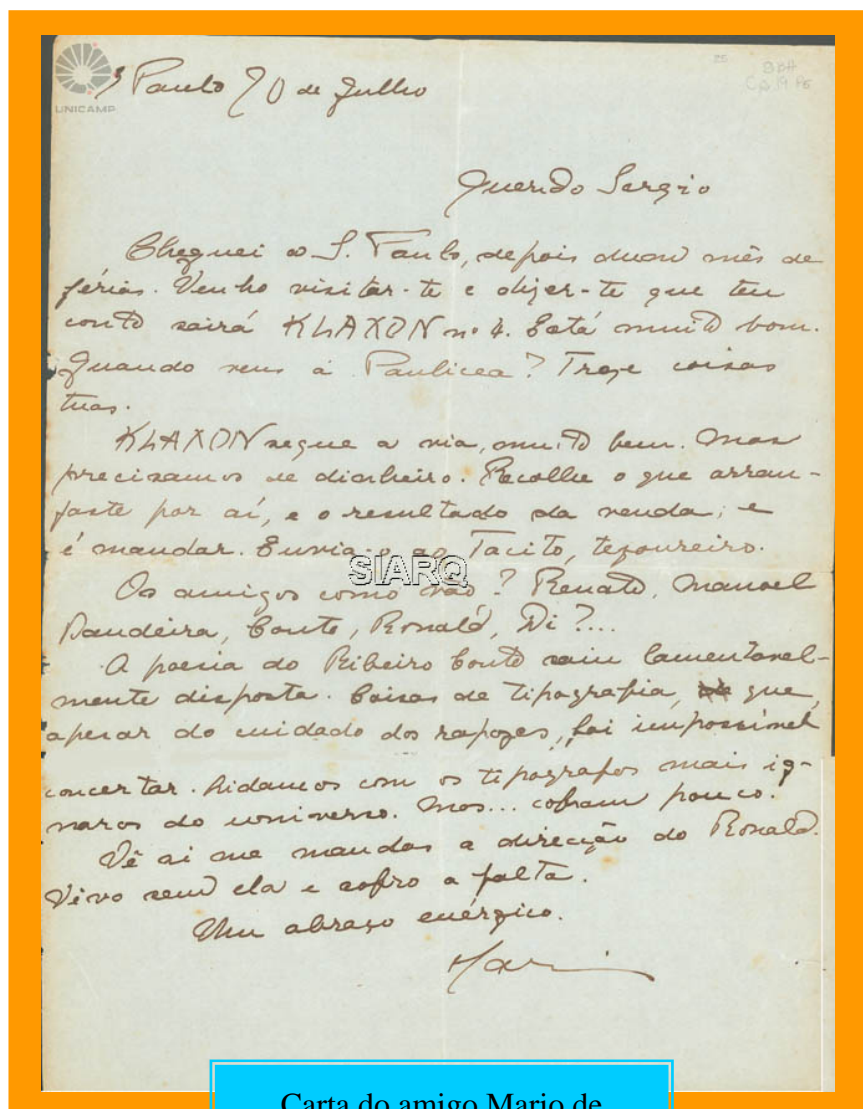 UNICAMP
S Paulo 20 de Julho
25
BBH
Cp 19 P6
Querido Sergio
Cheguei a S. Paulo, depois dum mês de
férias. Venho visitar-te e dizer-te que teu
conto sairá KLAXON nº 4. Está muito bom.
Quando vens á Paulicea? Traze coisas
tuas.
KLAXON segue a via, muito bem. Mas
precizamos de dinheiro. Recolhe o que arran-
jaste por aí, e o resultado da venda; e
é mandar. Envia-o ao Tacito, tezoureiro.
SIARQ
Os amigos como vão? Renato, Manuel
Bandeira, Couto, Ronald, Di?...
A poesia do Ribeiro Couto saiu lamentavel-
mente disposta. Coisas de tipografia, que,
apesar do cuidado dos rapazes, foi impossivel
concertar. Lidamos com os tipografos mais ig-
naros do universo. Mas... cobram pouco.
Vê si me mandas a direcção do Ronald.
Vivo sem ela e sofro a falta.
Um abraço enérgico.
Mario
Carta do amigo Mario de